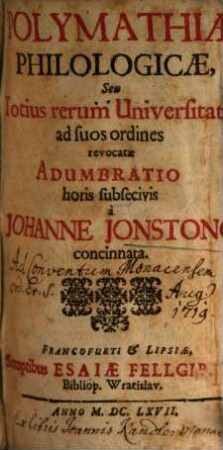 POLYMATHIÆ
PHILOLOGICÆ,
Seu
Totius rerum Universitat
ad suos ordines
revocatæ
ADUMBRATIO
horis subsecivis
à
JOHANNE JONSTONO
concinnata.
Ad Conventum Monacensem
Ord. Er. S. Aug.
1719
FRANCOFURTI & LIPSIÆ,
Sumptibus ESAIÆ FELLGIB
Bibliop. Wratislav.
ANNO M. DC. LXVII.
Ex libris Joannis Kandler